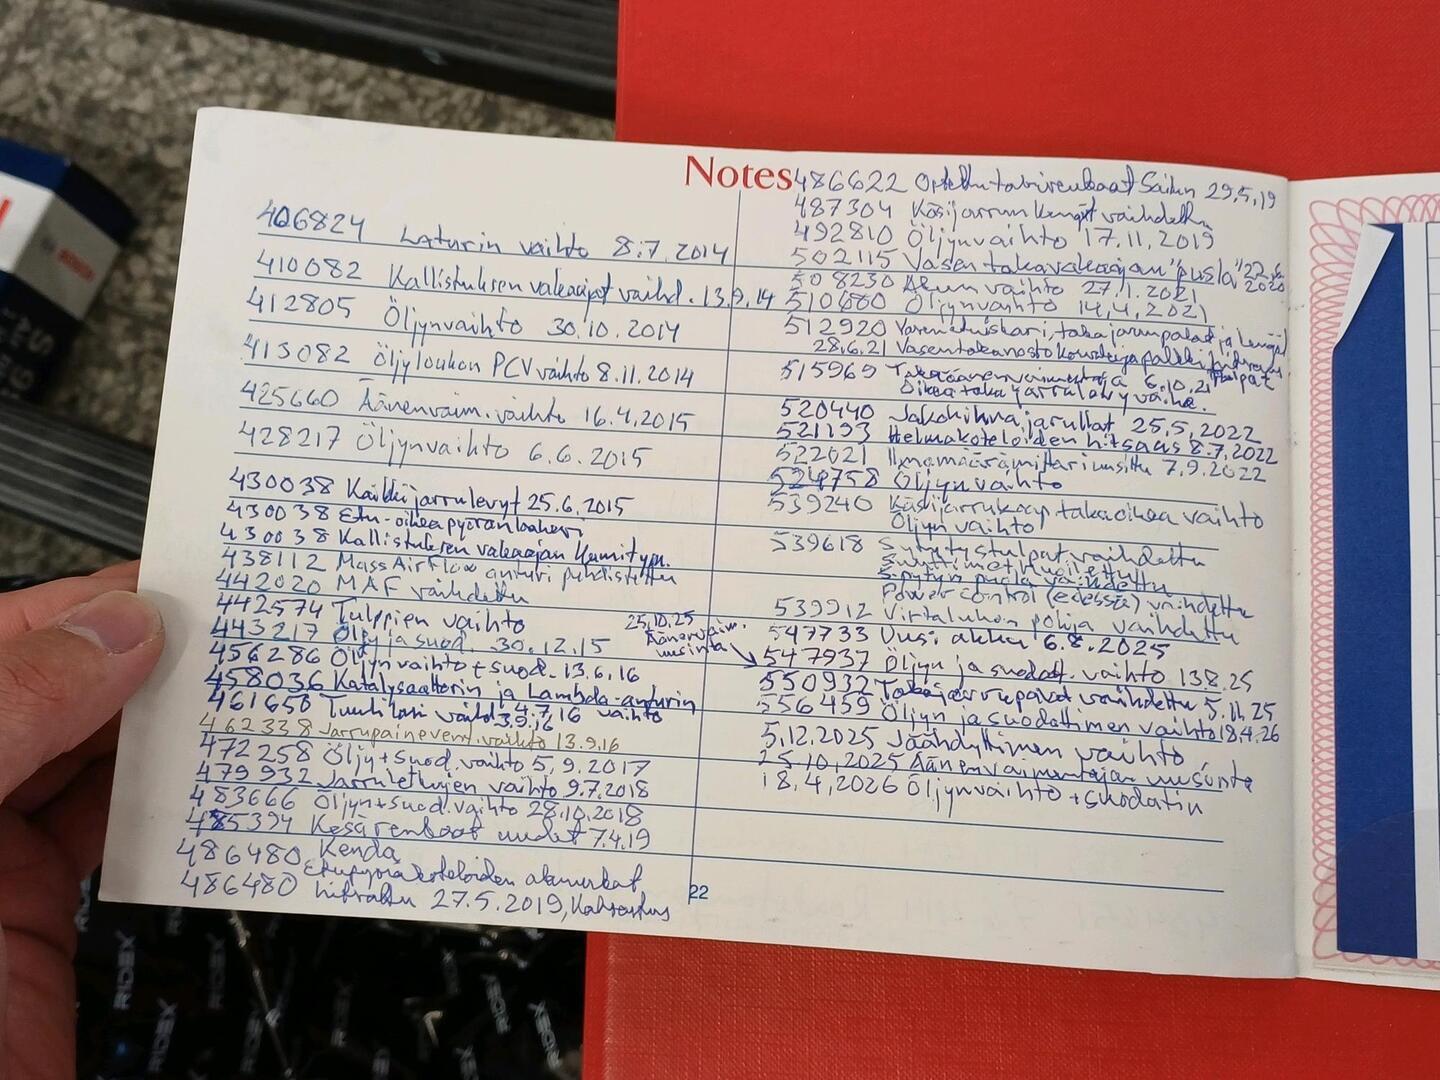 Notes
406824 Laturin vaihto 8.7.2014
410082 Kallistuksen vakaajat vaihd. 13.9.14
412805 Öljynvaihto 30.10.2014
413082 Öljyloukon PCV vaihto 8.11.2014
425660 Äänenvaim. vaihto 16.4.2015
428217 Öljynvaihto 6.6.2015
430038 Kaikki jarrulevyt 25.6.2015
430038 Etu-oikea pyöränlaakeri
430038 Kallistuksen vakaajan kumityyn.
438112 Mass Airflow anturi puhdistettu
442020 MAF vaihdettu
442574 Tulppien vaihto
443217 Öljy ja suod. 30.12.15
456286 Öljynvaihto + suod. 13.6.16
458036 Katalysaattorin ja Lambda-anturin
4.7.16 vaihto
461650 vaihd. 3.9.16
462338 Jarrupainevent. vaihto 13.9.16
472258 Öljy + suod. vaihto 5.9.2017
479932 Jarruletkujen vaihto 9.7.2018
483666 Öljyn + suod. vaihto 28.10.2018
485394 Kesärenkaat uudet 7.4.19
486480 Kenda
486480 Etupyöräkoteloiden alumurkat
hitsattu 27.5.2019, Katsastus
22
486622 Sailun 29.5.19
487304 Käsijarrun kengät vaihdettu
492810 Öljynvaihto 17.11.2019
502115 Vasen takavakaajan "pusla" 2020
508230 Akun vaihto 27.1.2021
510680 Öljynvaihto 14.4.2021
512920 takajarrupalat ja kengät
28.6.21 Vasen takanosto
515969 Takaäänenvaimentaja 6.10.21
Oikea taka jarrulevy vaihd.
520440 Jakohihna ja rullat 25.5.2022
521193 Helmakoteloiden hitsaus 8.7.2022
522021 Ilmamäärämittari uusittu 7.9.2022
524758 Öljynvaihto
539240 Käsijarrukaap. taka oikea vaihto
Öljyn vaihto
539618 Sytytystulpat vaihdettu
Suuttimet huollettu
Sytytyspuola vaihdettu
Power control (edessä) vaihdettu
539912 Virtalukon pohja vaihdettu
547733 Uusi akku 6.8.2025
25.10.25
Äänenvaim.
uusinta
547937 Öljyn ja suodat. vaihto 13.8.25
550932 Takajarrupalat vaihdettu 5.11.25
556459 Öljyn ja suodattimen vaihto 18.4.26
5.12.2025 Jäähdyttimen vaihto
25.10.2025 Äänenvaimentajan uusinta
18.4.2026 Öljynvaihto + suodatin
RIDEX
RIDEX
RIDEX